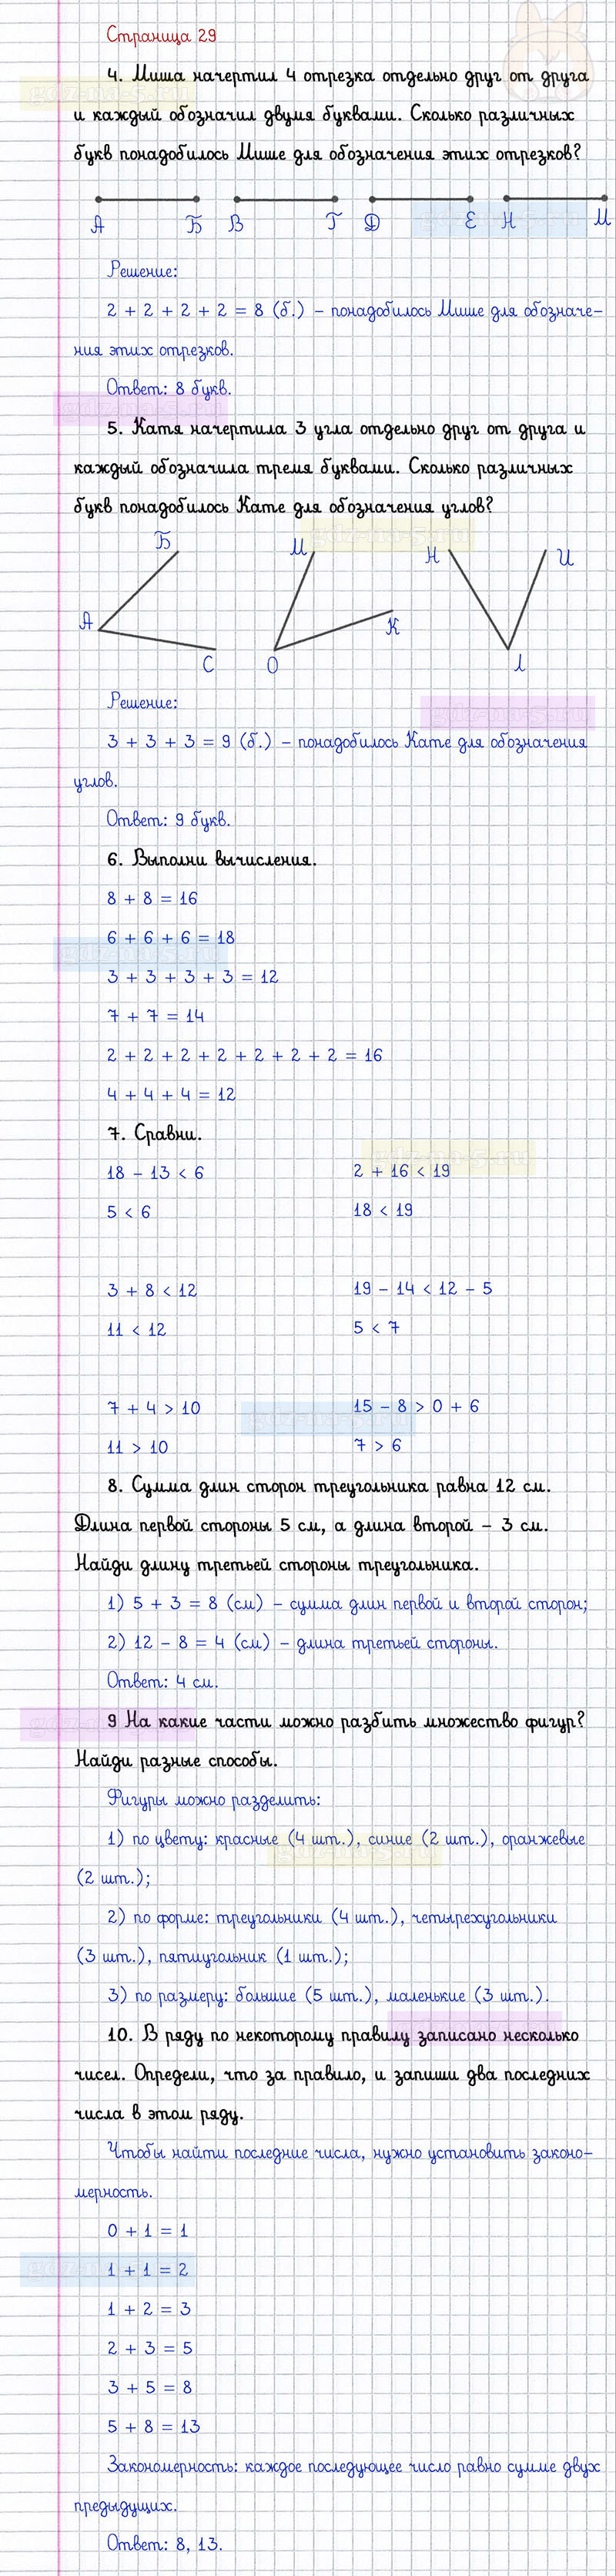 Страница 29
4. Миша начертил 4 отрезка отдельно друг от друга
и каждый обозначил двумя буквами. Сколько различных
букв понадобилось Мише для обозначения этих отрезков?
А Б В Г Д Е Н М
Решение:
2 + 2 + 2 + 2 = 8 (б.) – понадобилось Мише для обозначе-
ния этих отрезков.
Ответ: 8 букв.
5. Катя начертила 3 угла отдельно друг от друга и
каждый обозначила тремя буквами. Сколько различных
букв понадобилось Кате для обозначения углов?
Б М Н И
А К
С О Л
Решение:
3 + 3 + 3 = 9 (б.) – понадобилось Кате для обозначения
углов.
Ответ: 9 букв.
6. Выполни вычисления.
8 + 8 = 16
6 + 6 + 6 = 18
3 + 3 + 3 + 3 = 12
7 + 7 = 14
2 + 2 + 2 + 2 + 2 + 2 + 2 = 16
4 + 4 + 4 = 12
7. Сравни.
18 – 13 < 6 2 + 16 < 19
5 < 6 18 < 19
3 + 8 < 12 19 – 14 < 12 – 5
11 < 12 5 < 7
7 + 4 > 10 15 – 8 > 0 + 6
11 > 10 7 > 6
8. Сумма длин сторон треугольника равна 12 см.
Длина первой стороны 5 см, а длина второй – 3 см.
Найди длину третьей стороны треугольника.
1) 5 + 3 = 8 (см) – сумма длин первой и второй сторон;
2) 12 – 8 = 4 (см) – длина третьей стороны.
Ответ: 4 см.
9 На какие части можно разбить множество фигур?
Найди разные способы.
Фигуры можно разделить:
1) по цвету: красные (4 шт.), синие (2 шт.), оранжевые
(2 шт.);
2) по форме: треугольники (4 шт.), четырехугольники
(3 шт.), пятиугольник (1 шт.);
3) по размеру: большие (5 шт.), маленькие (3 шт.).
10. В ряду по некоторому правилу записано несколько
чисел. Определи, что за правило, и запиши два последних
числа в этом ряду.
Чтобы найти последние числа, нужно установить законо-
мерность.
0 + 1 = 1
1 + 1 = 2
1 + 2 = 3
2 + 3 = 5
3 + 5 = 8
5 + 8 = 13
Закономерность: каждое последующее число равно сумме двух
предыдущих.
Ответ: 8, 13.